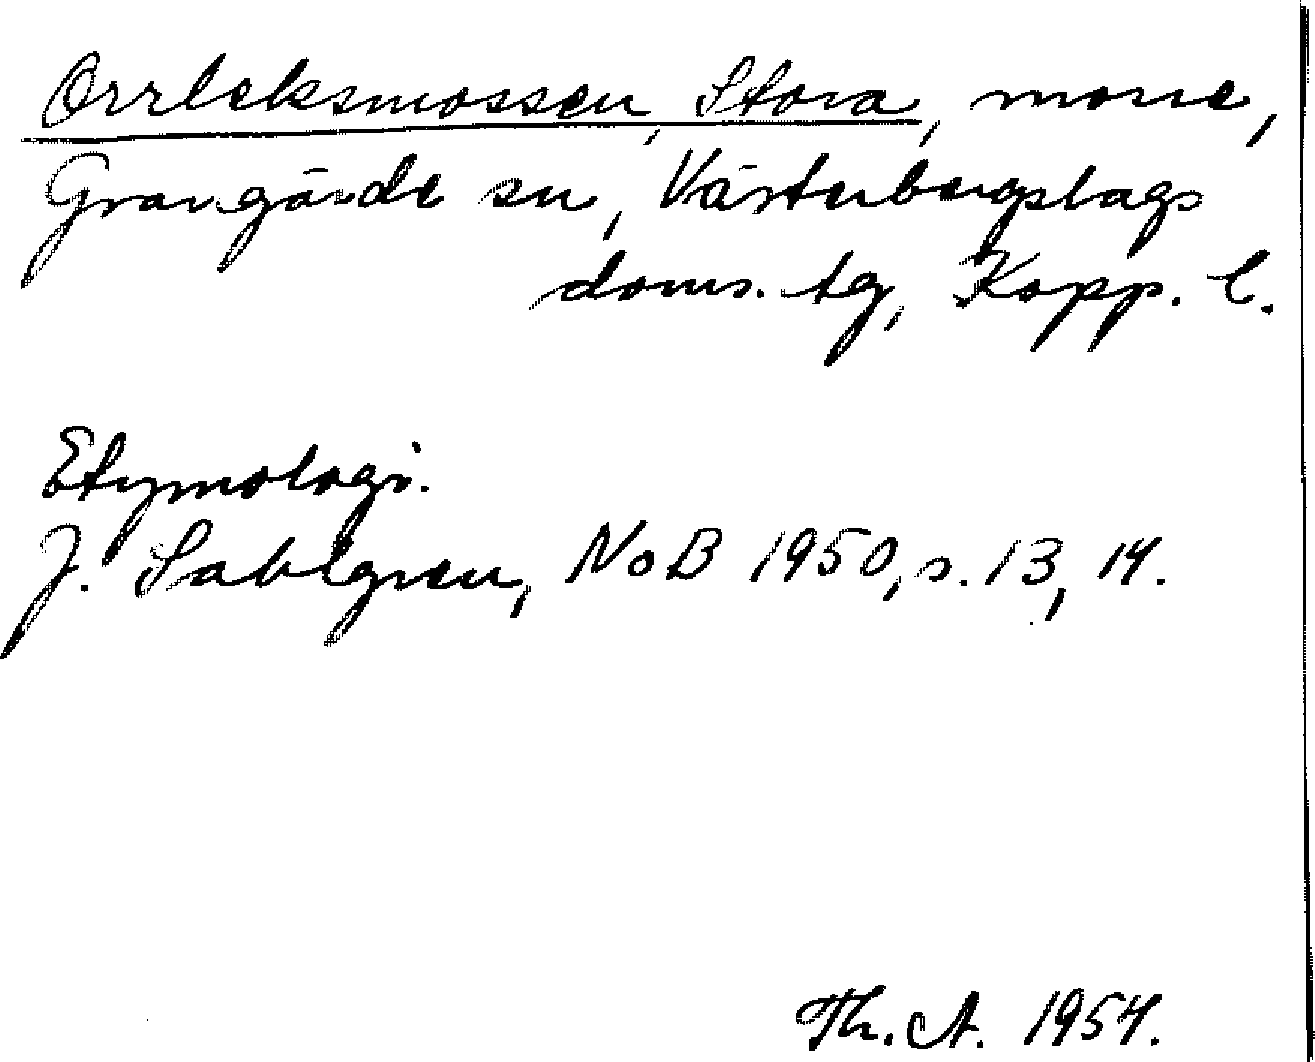 Orrleksmossen, Stora, mosse,
Grangärde sn, Västerbergslags
doms. tg, Kopp. l.
Etymologi.
J. Sahlgren, NoB 1950, s. 13, 14.
Th. A. 1954.